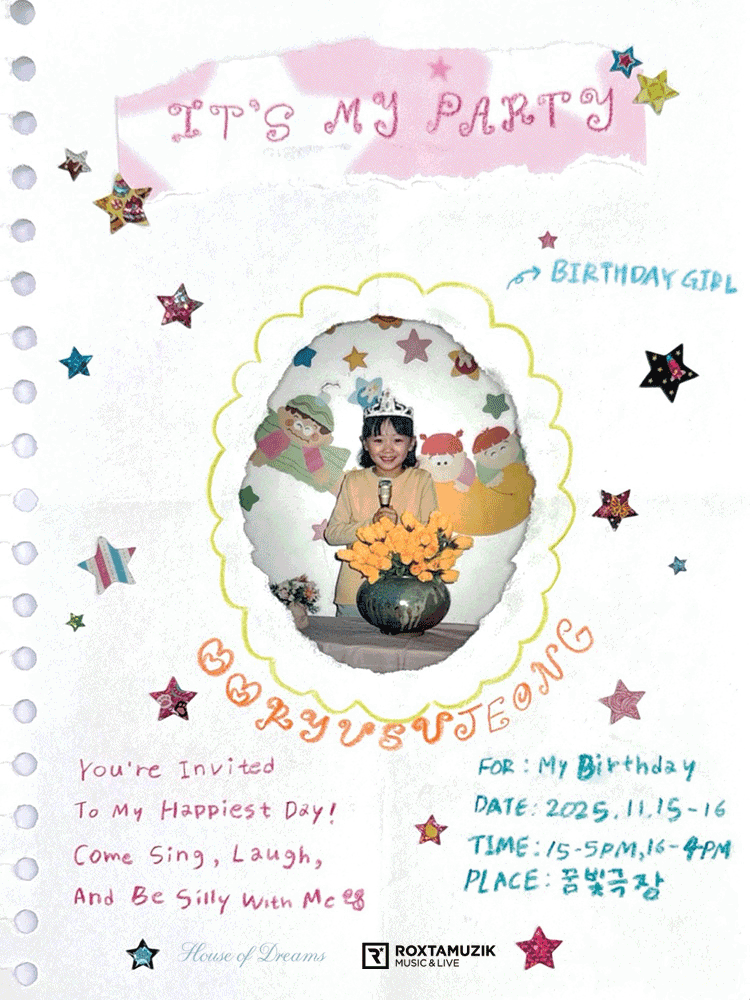 IT'S MY PARTY
BIRTHDAY GIRL
RYUSUJEONG
You're Invited
To My Happiest Day!
Come Sing, Laugh,
And Be Silly With Me
FOR: My Birthday
DATE: 2025.11.15-16
TIME: 15-5PM, 16-4PM
PLACE: 꿈빛극장
House of Dreams
ROXTAMUZIK
MUSIC & LIVE